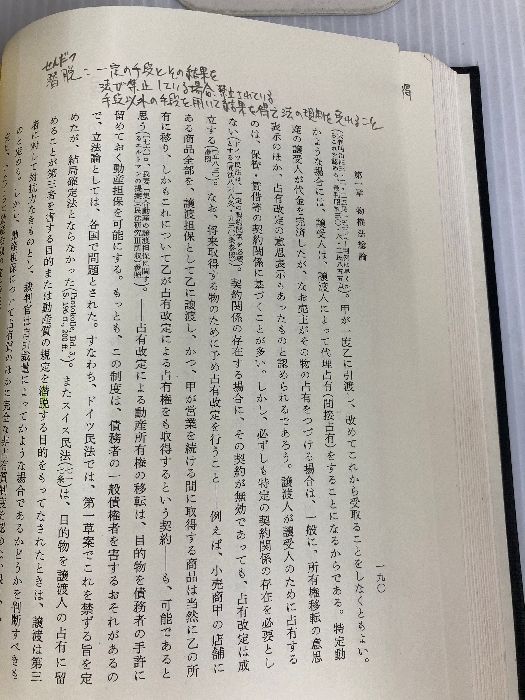 せんだつ
潜脱：一定の手段とその結果を
法が禁止している場合、禁止されている
手段以外の手段を用いて結果を得て法の規制を免れること
第一章 物權法總論
一九〇
甲が一度乙に引渡して、改めてこれから受取ることをしなくともよい。
かような場合には、讓受人は、讓渡人によって代理占有（間接占有）をすることになるからである。特定動
産の讓受人が代金を完済したが、なお売主がその物の占有をつづける場合は、一般に、所有権移転の意思
表示のほか、占有改定の意思表示もあったものと認められるであろう。讓渡人が讓受人のために占有する
のは、保管・賃借等の契約関係に基づくことが多い。しかし、必ずしも特定の契約関係の存在を必要とし
ない。契約関係の存在する場合に、その契約が無効であっても、占有改定は成
立する。なお、将来取得する物のために予め占有改定を行うこと――例えば、小売商甲の店舗に
ある商品全部を、讓渡担保として乙に讓渡し、かつ、甲が営業を続ける間に取得する商品は当然に乙の所
有に移り、しかもこれについて乙が占有改定による占有権をも取得するという契約――も、可能であると
思う。――占有改定による動産所有権の移転は、目的物を債務者の手許に
留めておく動産担保を可能にする。もっとも、この制度は、債務者の一般債権者を害するおそれがあるの
で、立法論としては、各国で問題とされた。すなわち、ドイツ民法では、第一草案でこれを禁ずる旨を定
めたが、結局確定法とならなかった。またスイス民法は、目的物を讓渡人の占有に留
めることが第三者を害する目的または動産質の規定を潜脱する目的をもってなされたときは、讓渡は第三
者に対して対抗力なきものとし、裁判官は
かような場合であるかどうかを判断すべきも